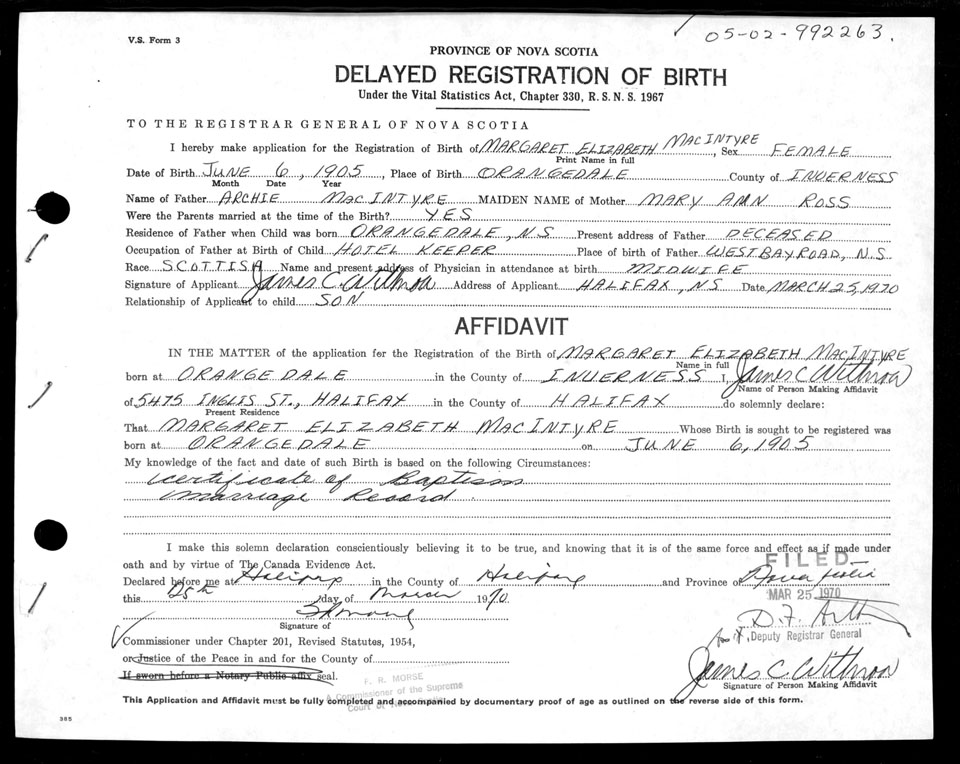 V.S. Form 3
05-02-992263.
PROVINCE OF NOVA SCOTIA
DELAYED REGISTRATION OF BIRTH
Under the Vital Statistics Act, Chapter 330, R. S. N. S. 1967
TO THE REGISTRAR GENERAL OF NOVA SCOTIA
I hereby make application for the Registration of Birth of MARGARET ELIZABETH MACINTYRE, Sex FEMALE
Print Name in full
Date of Birth JUNE 6, 1905, Place of Birth ORANGEDALE County of INVERNESS
Month Date Year
Name of Father ARCHIE MACINTYRE MAIDEN NAME of Mother MARY ANN ROSS
Were the Parents married at the time of the Birth? YES
Residence of Father when Child was born ORANGEDALE, N.S Present address of Father DECEASED
Occupation of Father at Birth of Child HOTEL KEEPER Place of birth of Father WEST BAY ROAD, N.S.
Race SCOTTISH Name and present address of Physician in attendance at birth MIDWIFE
Signature of Applicant James C. Withrow Address of Applicant HALIFAX, NS Date MARCH 25, 1970
Relationship of Applicant to child SON
AFFIDAVIT
IN THE MATTER of the application fer the Registration of the Birth of MARGARET ELIZABETH MACINTYRE
Name in full
born at ORANGEDALE in the County of INVERNESS I, James C Withrow
Name of Person Making Affidavit
of 5475 INGLIS ST., HALIFAX in the County of HALIFAX do solemnly declare:
Present Residence
That MARGARET ELIZABETH MACINTYRE Whose Birth is sought to be registered was
born at ORANGEDALE on JUNE 6, 1905
My knowledge of the fact and date of such Birth is based on the following Circumstances:
Certificate of Baptism
Marriage Record
I make this solemn declaration conscientiously believing it to be true, and knowing that it is of the same force and effect as if made under
oath and by virtue of The Canada Evidence Act.
FILED
Declared before me at Halifax in the County of Halifax and Province of Nova Scotia
this 25th day of March 1970
MAR 25 1970
Signature of
Deputy Registrar General
Commissioner under Chapter 201, Revised Statutes, 1954,
or Justice of the Peace in and for the County of
If sworn before a Notary Public affix seal.
F. R. MORSE
A Commissioner of the Supreme
Court of
James C. Withrow
Signature of Person Making Affidavit
This Application and Affidavit must be fully completed and accompanied by documentary proof of age as outlined on the reverse side of this form.
385